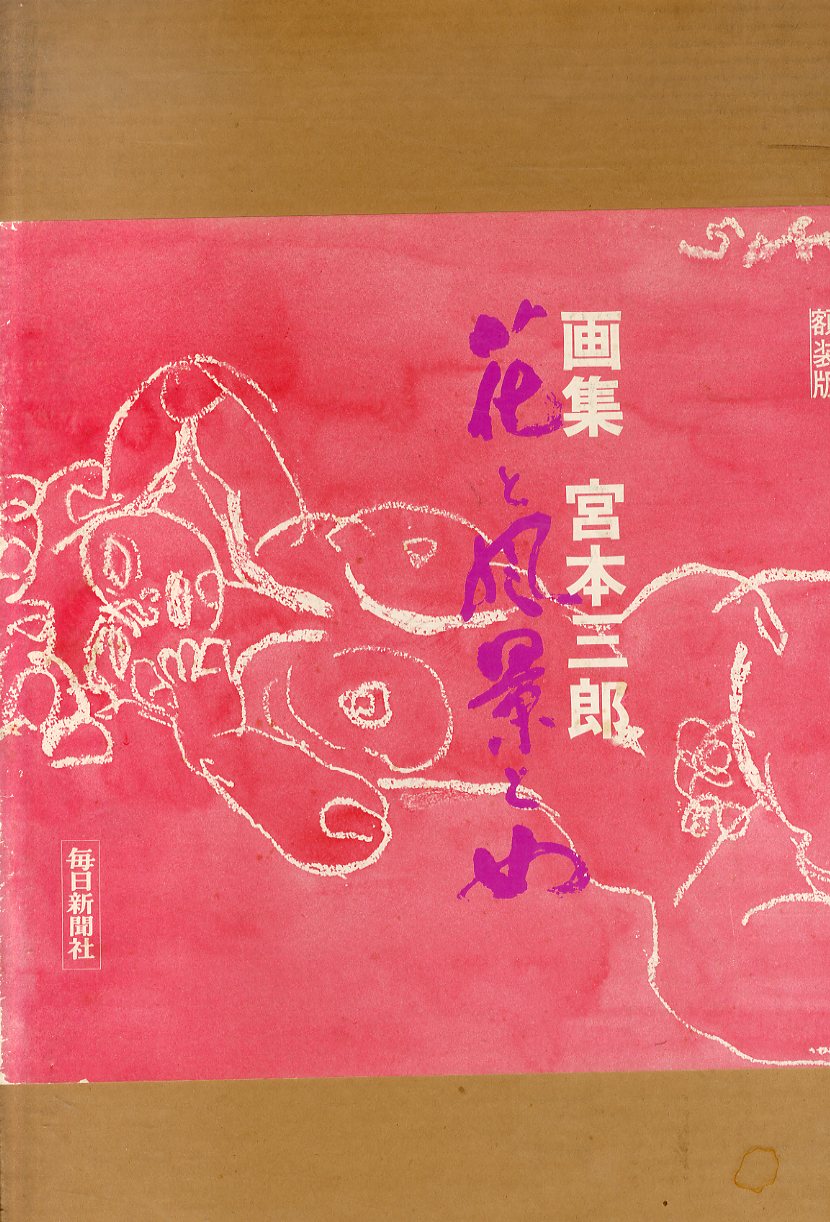 額装版
画集 宮本三郎
花と風景と女
毎日新聞社